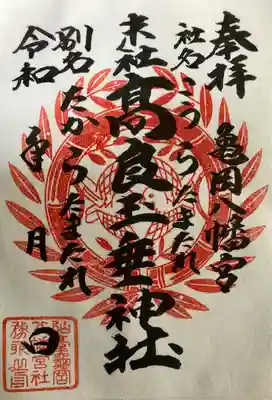 奉拝
亀岡八幡宮
社名 こうらたまたれ
末社 高良玉垂神社
別名 たからたまたれ
令和 年 月 日